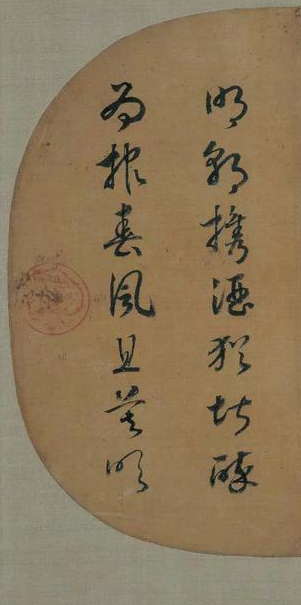 明朝攜酒猶堪醉
為報春風且莫吹